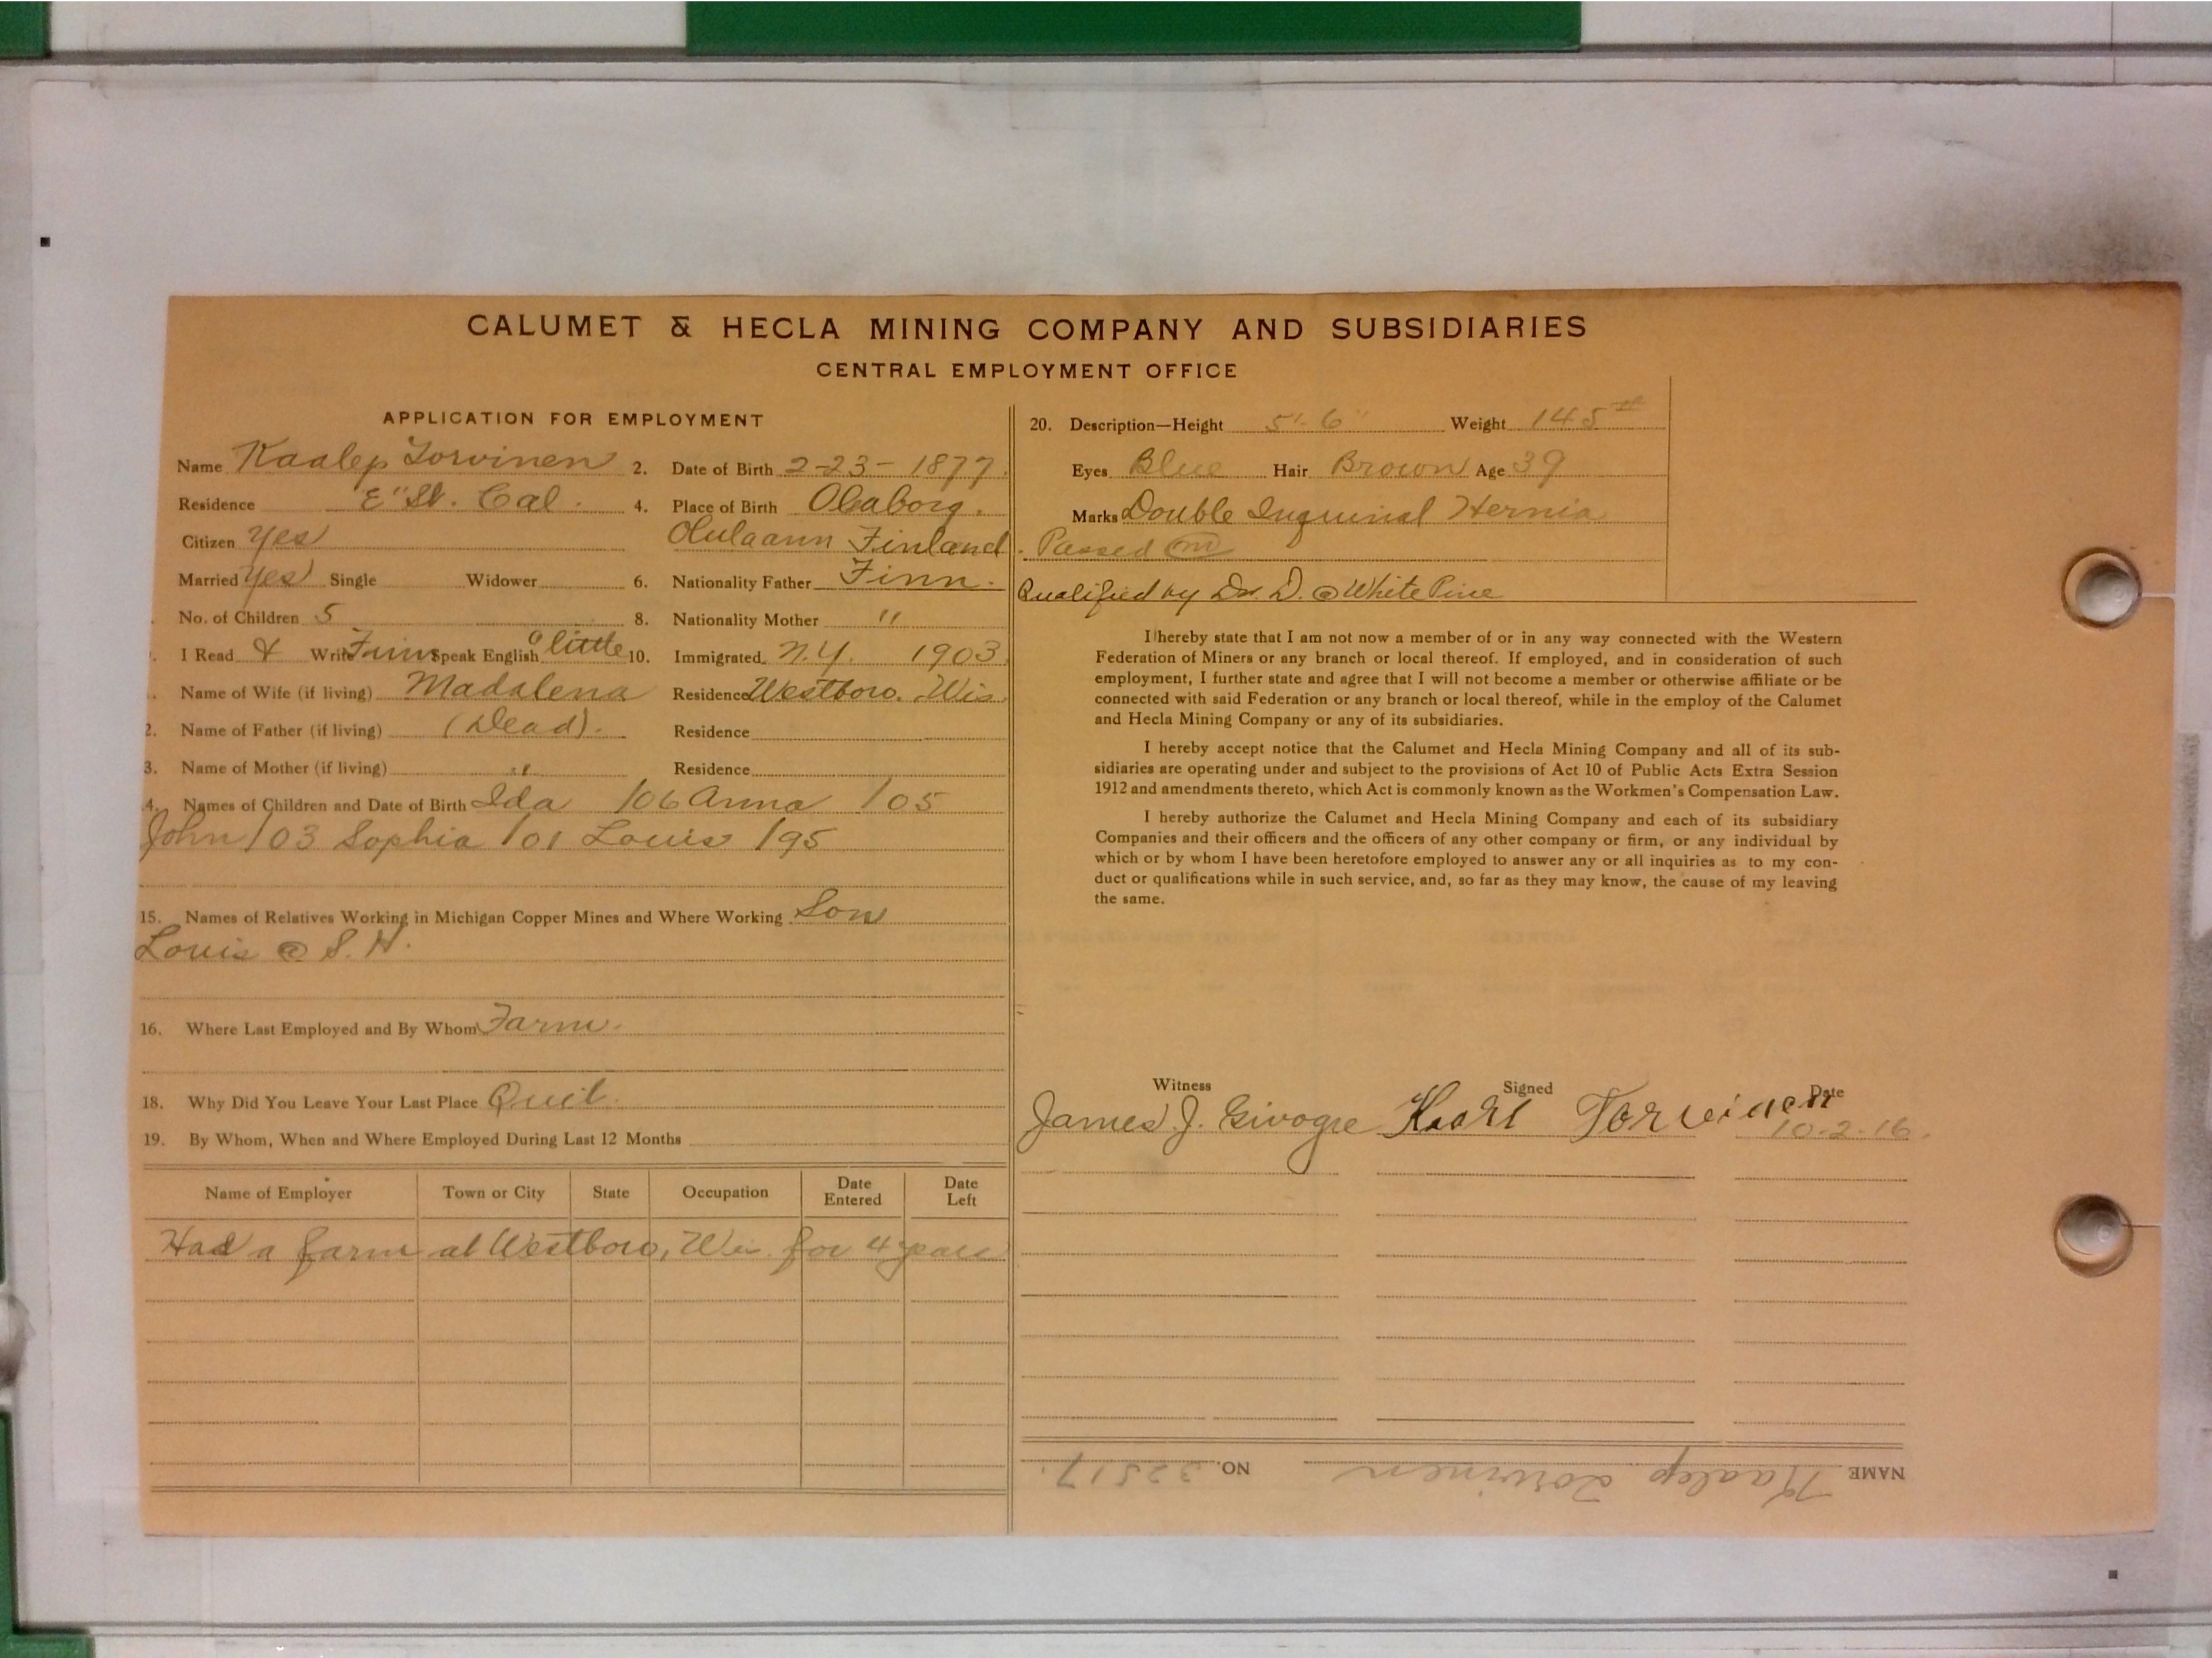 CALUMET & HECLA MINING COMPANY AND SUBSIDIARIES
CENTRAL EMPLOYMENT OFFICE
APPLICATION FOR EMPLOYMENT
Name Kaalep Torvinen 2. Date of Birth 2-23-1877.
Residence "E" St. Cal. 4. Place of Birth Oleaborg.
Citizen Yes Olulaann Finland.
Married Yes Single Widower 6. Nationality Father Finn.
No. of Children 5 8. Nationality Mother "
I Read & Write Finn Speak English a little 10. Immigrated N.Y. 1903.
Name of Wife (if living) Madalena Residence Westboro. Wis.
2. Name of Father (if living) (Dead). Residence
3. Name of Mother (if living) " Residence
4. Names of Children and Date of Birth Ida /06 Anna /05
John /03 Sophia /01 Louis /95
15. Names of Relatives Working in Michigan Copper Mines and Where Working Son
Louis @ S. H.
16. Where Last Employed and By Whom Farm.
18. Why Did You Leave Your Last Place Quit.
19. By Whom, When and Where Employed During Last 12 Months
Name of Employer Town or City State Occupation Date Entered Date Left
Had a farm at Westboro, Wis. for 4 years
20. Description—Height 5'-6" Weight 145#
Eyes Blue Hair Brown Age 39
Marks Double Inguinal Hernia
Passed
Qualified by Dr. D. @ White Pine
I hereby state that I am not now a member of or in any way connected with the Western
Federation of Miners or any branch or local thereof. If employed, and in consideration of such
employment, I further state and agree that I will not become a member or otherwise affiliate or be
connected with said Federation or any branch or local thereof, while in the employ of the Calumet
and Hecla Mining Company or any of its subsidiaries.
I hereby accept notice that the Calumet and Hecla Mining Company and all of its sub-
sidiaries are operating under and subject to the provisions of Act 10 of Public Acts Extra Session
1912 and amendments thereto, which Act is commonly known as the Workmen's Compensation Law.
I hereby authorize the Calumet and Hecla Mining Company and each of its subsidiary
Companies and their officers and the officers of any other company or firm, or any individual by
which or by whom I have been heretofore employed to answer any or all inquiries as to my con-
duct or qualifications while in such service, and, so far as they may know, the cause of my leaving
the same.
Witness Signed Date
James J. Givogre Kaahl Torvinen 10-2-16.
NAME Kaalep Torvinen NO. 32517.